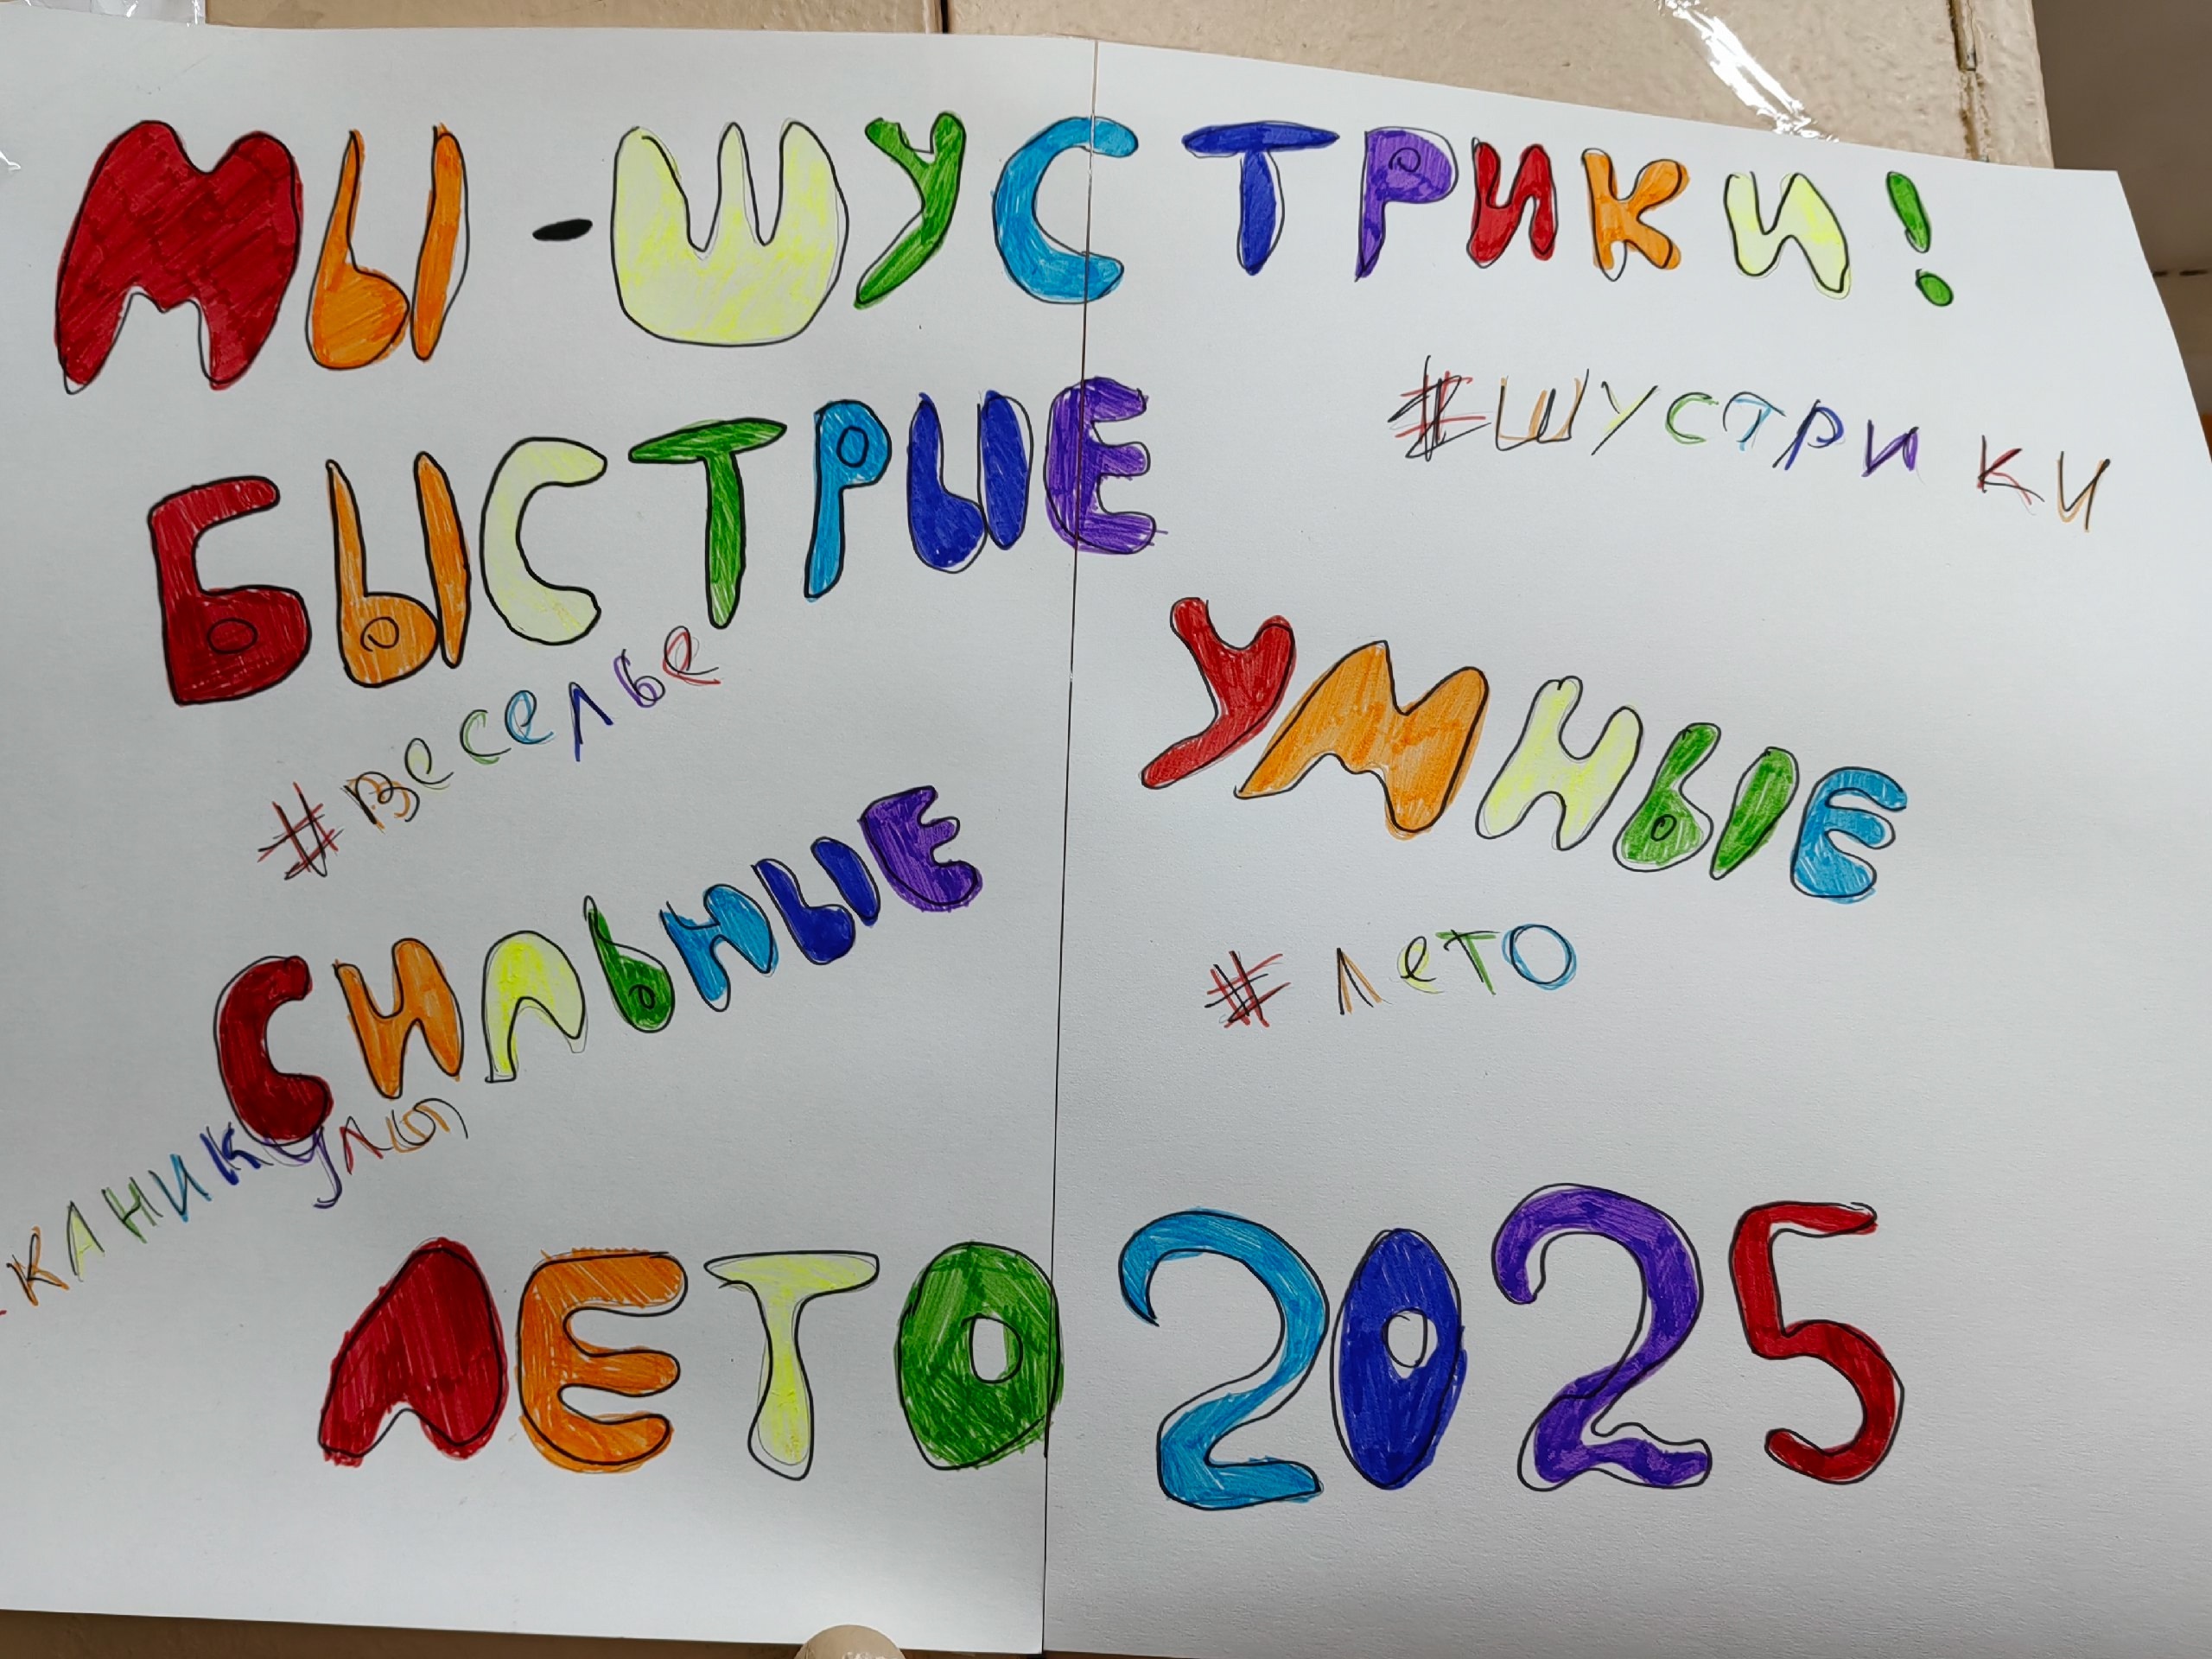 МЫ - ШУСТРИКИ!
#ШУСТРИКИ
БЫСТРЫЕ
#веселье
УМНЫЕ
СИЛЬНЫЕ
#лето
#КАНИКУЛЫ
ЛЕТО 2025